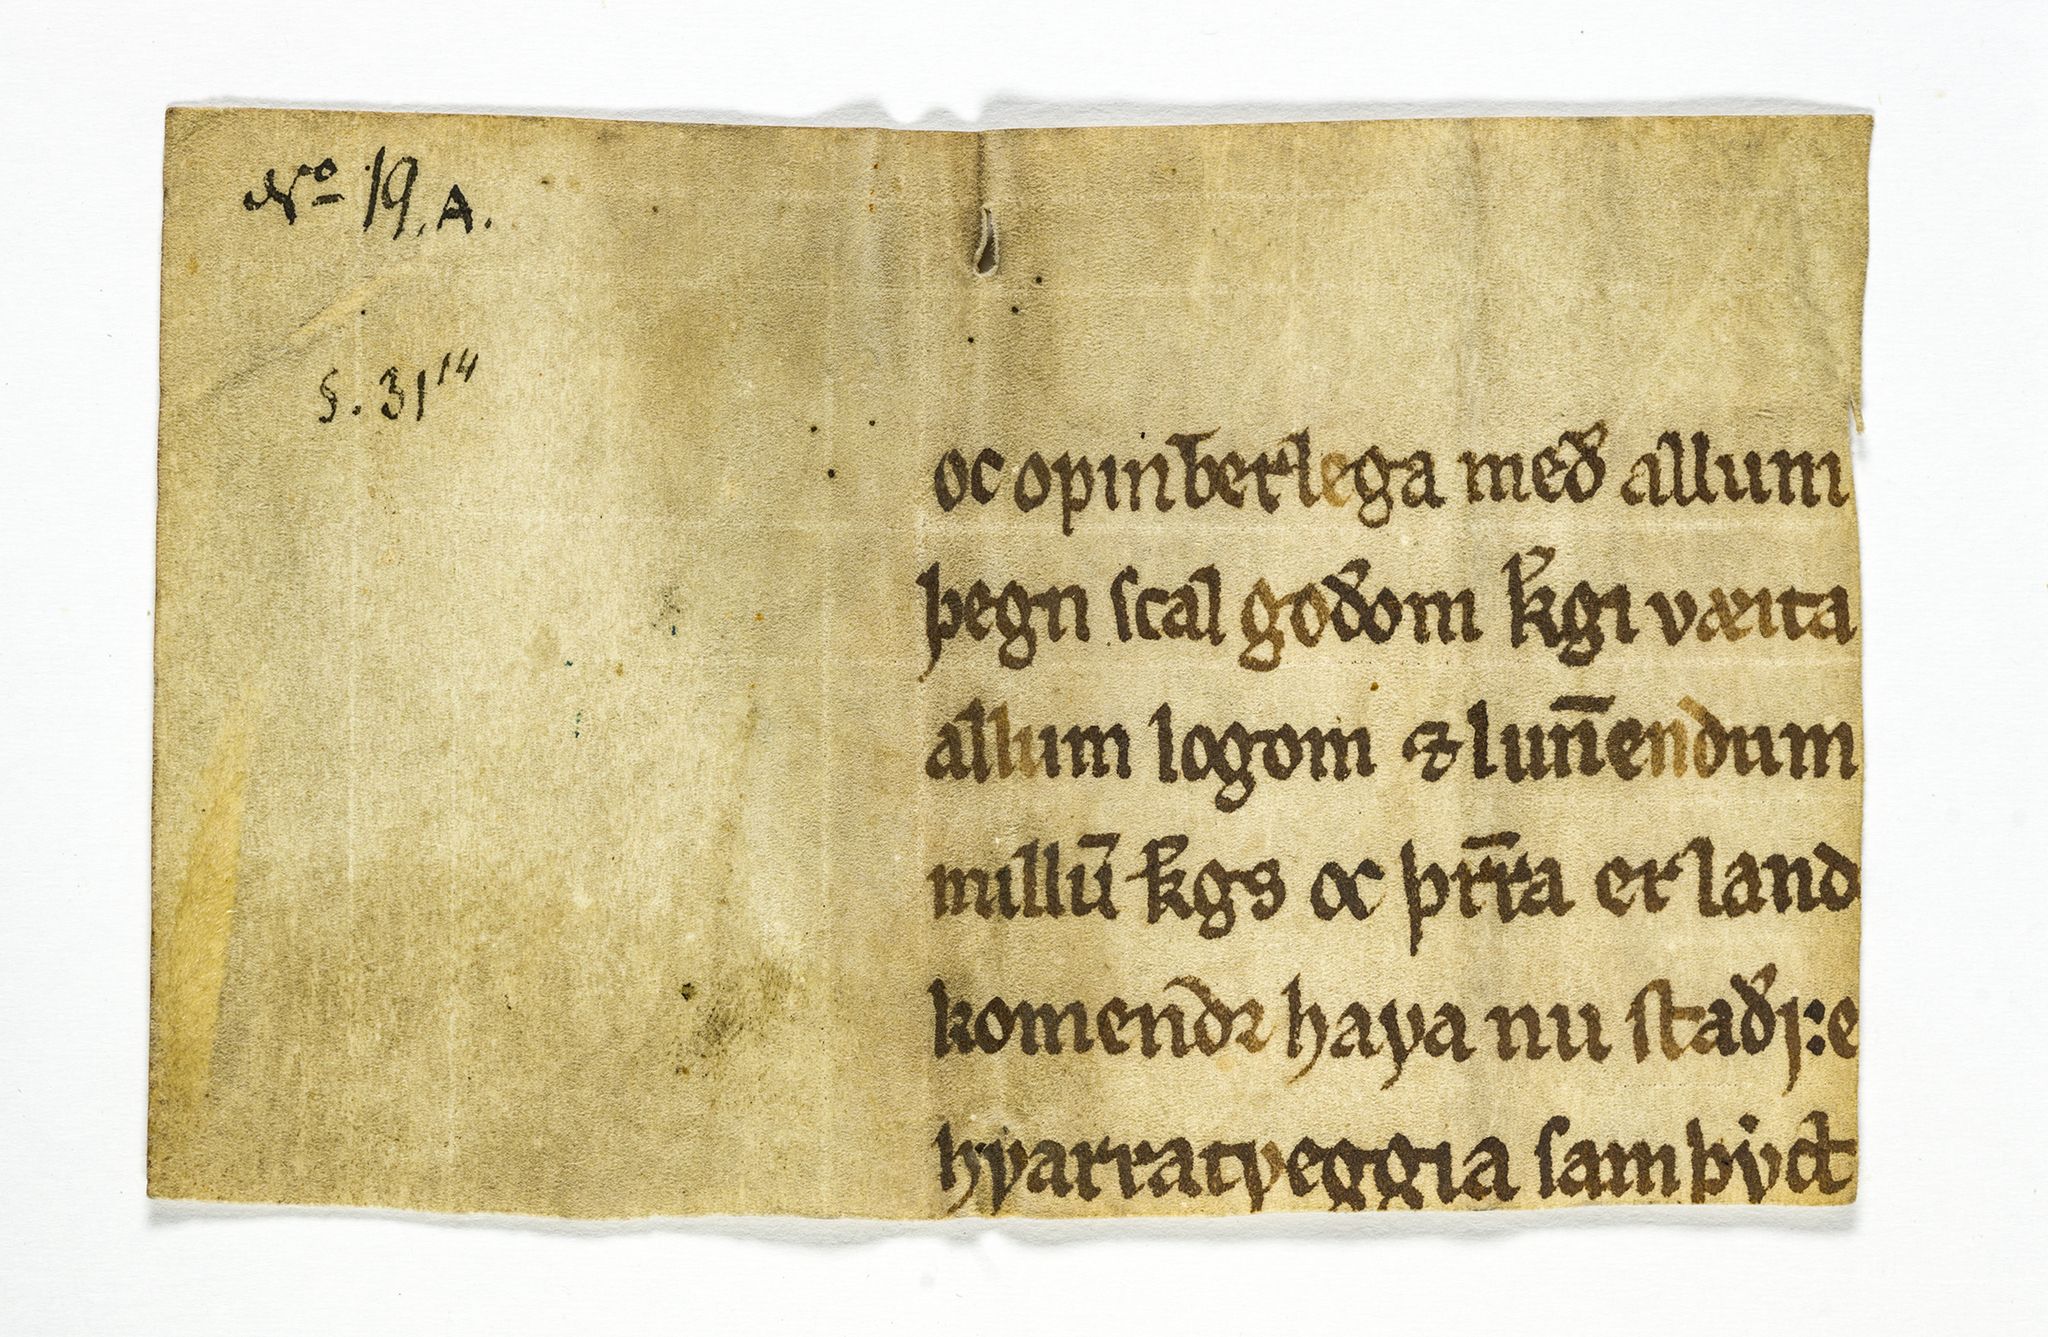 Nº 19. A.
§. 31¹⁴
oc opinberlega með allum
þegn scal goðom k̅gi væita
allum logom ⁊ lun̅endum
millu̅ k̅gs oc þr̅ra er land
komendꝛ haꝩa nu ſtaðꝼ:e
hꝩarratꝩeggia samþẏct